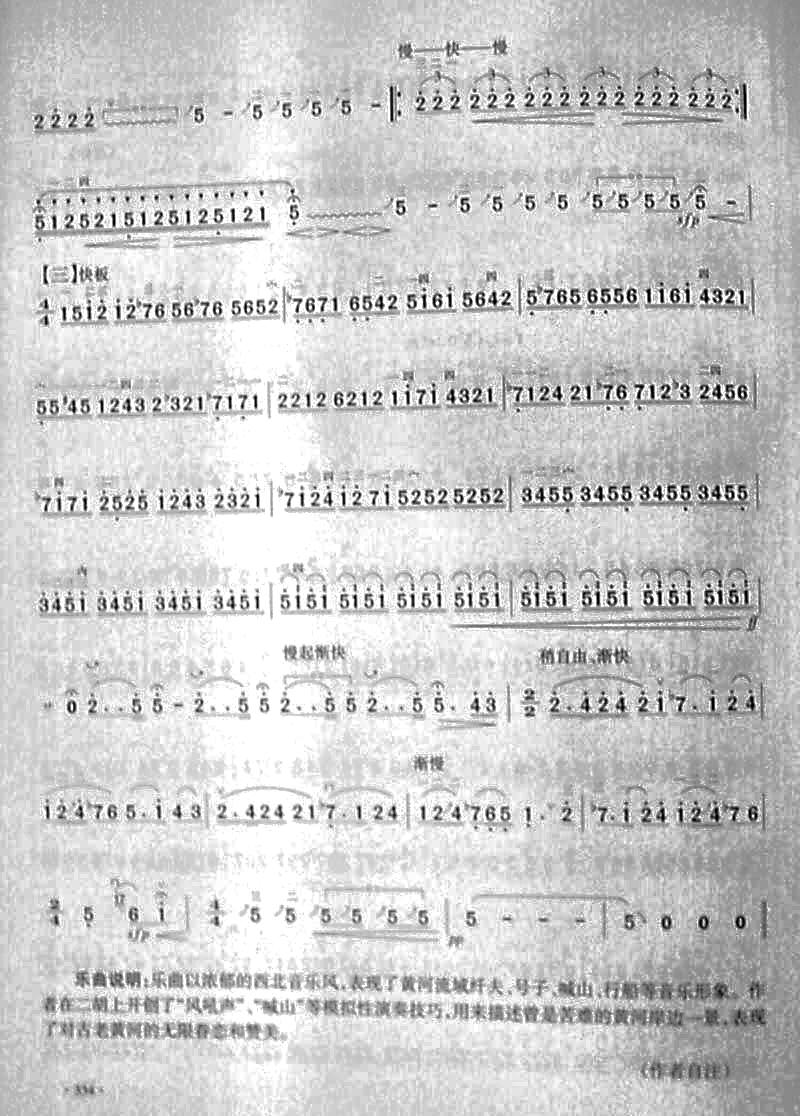 慢——快——慢
2222 5 – 5 5 5 5 – 222 222 222 222 222 222
5125215125125121 5 5 – 5 5 5 5 5 5 5 5 5 –
sfp
【三】快板
4/4 1512 12♭76 56♭76 5652 | ♭7671 6542 5161 5642 | 5♭765 6556 1161 4321 |
55♯45 1243 2♭321 ♭7171 | 2212 6212 1171 4321 | ♭7124 21♭76 712♭3 2456 |
♭7171 2525 1243 2321 | ♭7124 1271 5252 5252 | 3455 3455 3455 3455 |
3451 3451 3451 3451 | 5151 5151 5151 5151 | 5151 5151 5151 5151 |
ff
慢起渐快 稍自由、渐快
0 2..5 5 – 2..5 5 2..5 5 2..5 5.43 | 2/2 2.424 21 ♭7.124 |
渐慢
124♭765.143 | 2.42421♭7.124 | 124♭765 1.2 | ♭7.124 124♭76 |
2/4 5 6 1 | 4/4 5 5 5 5 5 5 | 5 – – – | 5 0 0 0 |
sfp pp
乐曲说明:乐曲以浓郁的西北音乐风,表现了黄河流域纤夫、号子、喊山、行船等音乐形象。作
者在二胡上开创了“风吼声”、“喊山”等模拟性演奏技巧,用来描述曾是苦难的黄河岸边一景,表现
了对古老黄河的无限眷恋和赞美。
(作者自注)
· 334 ·